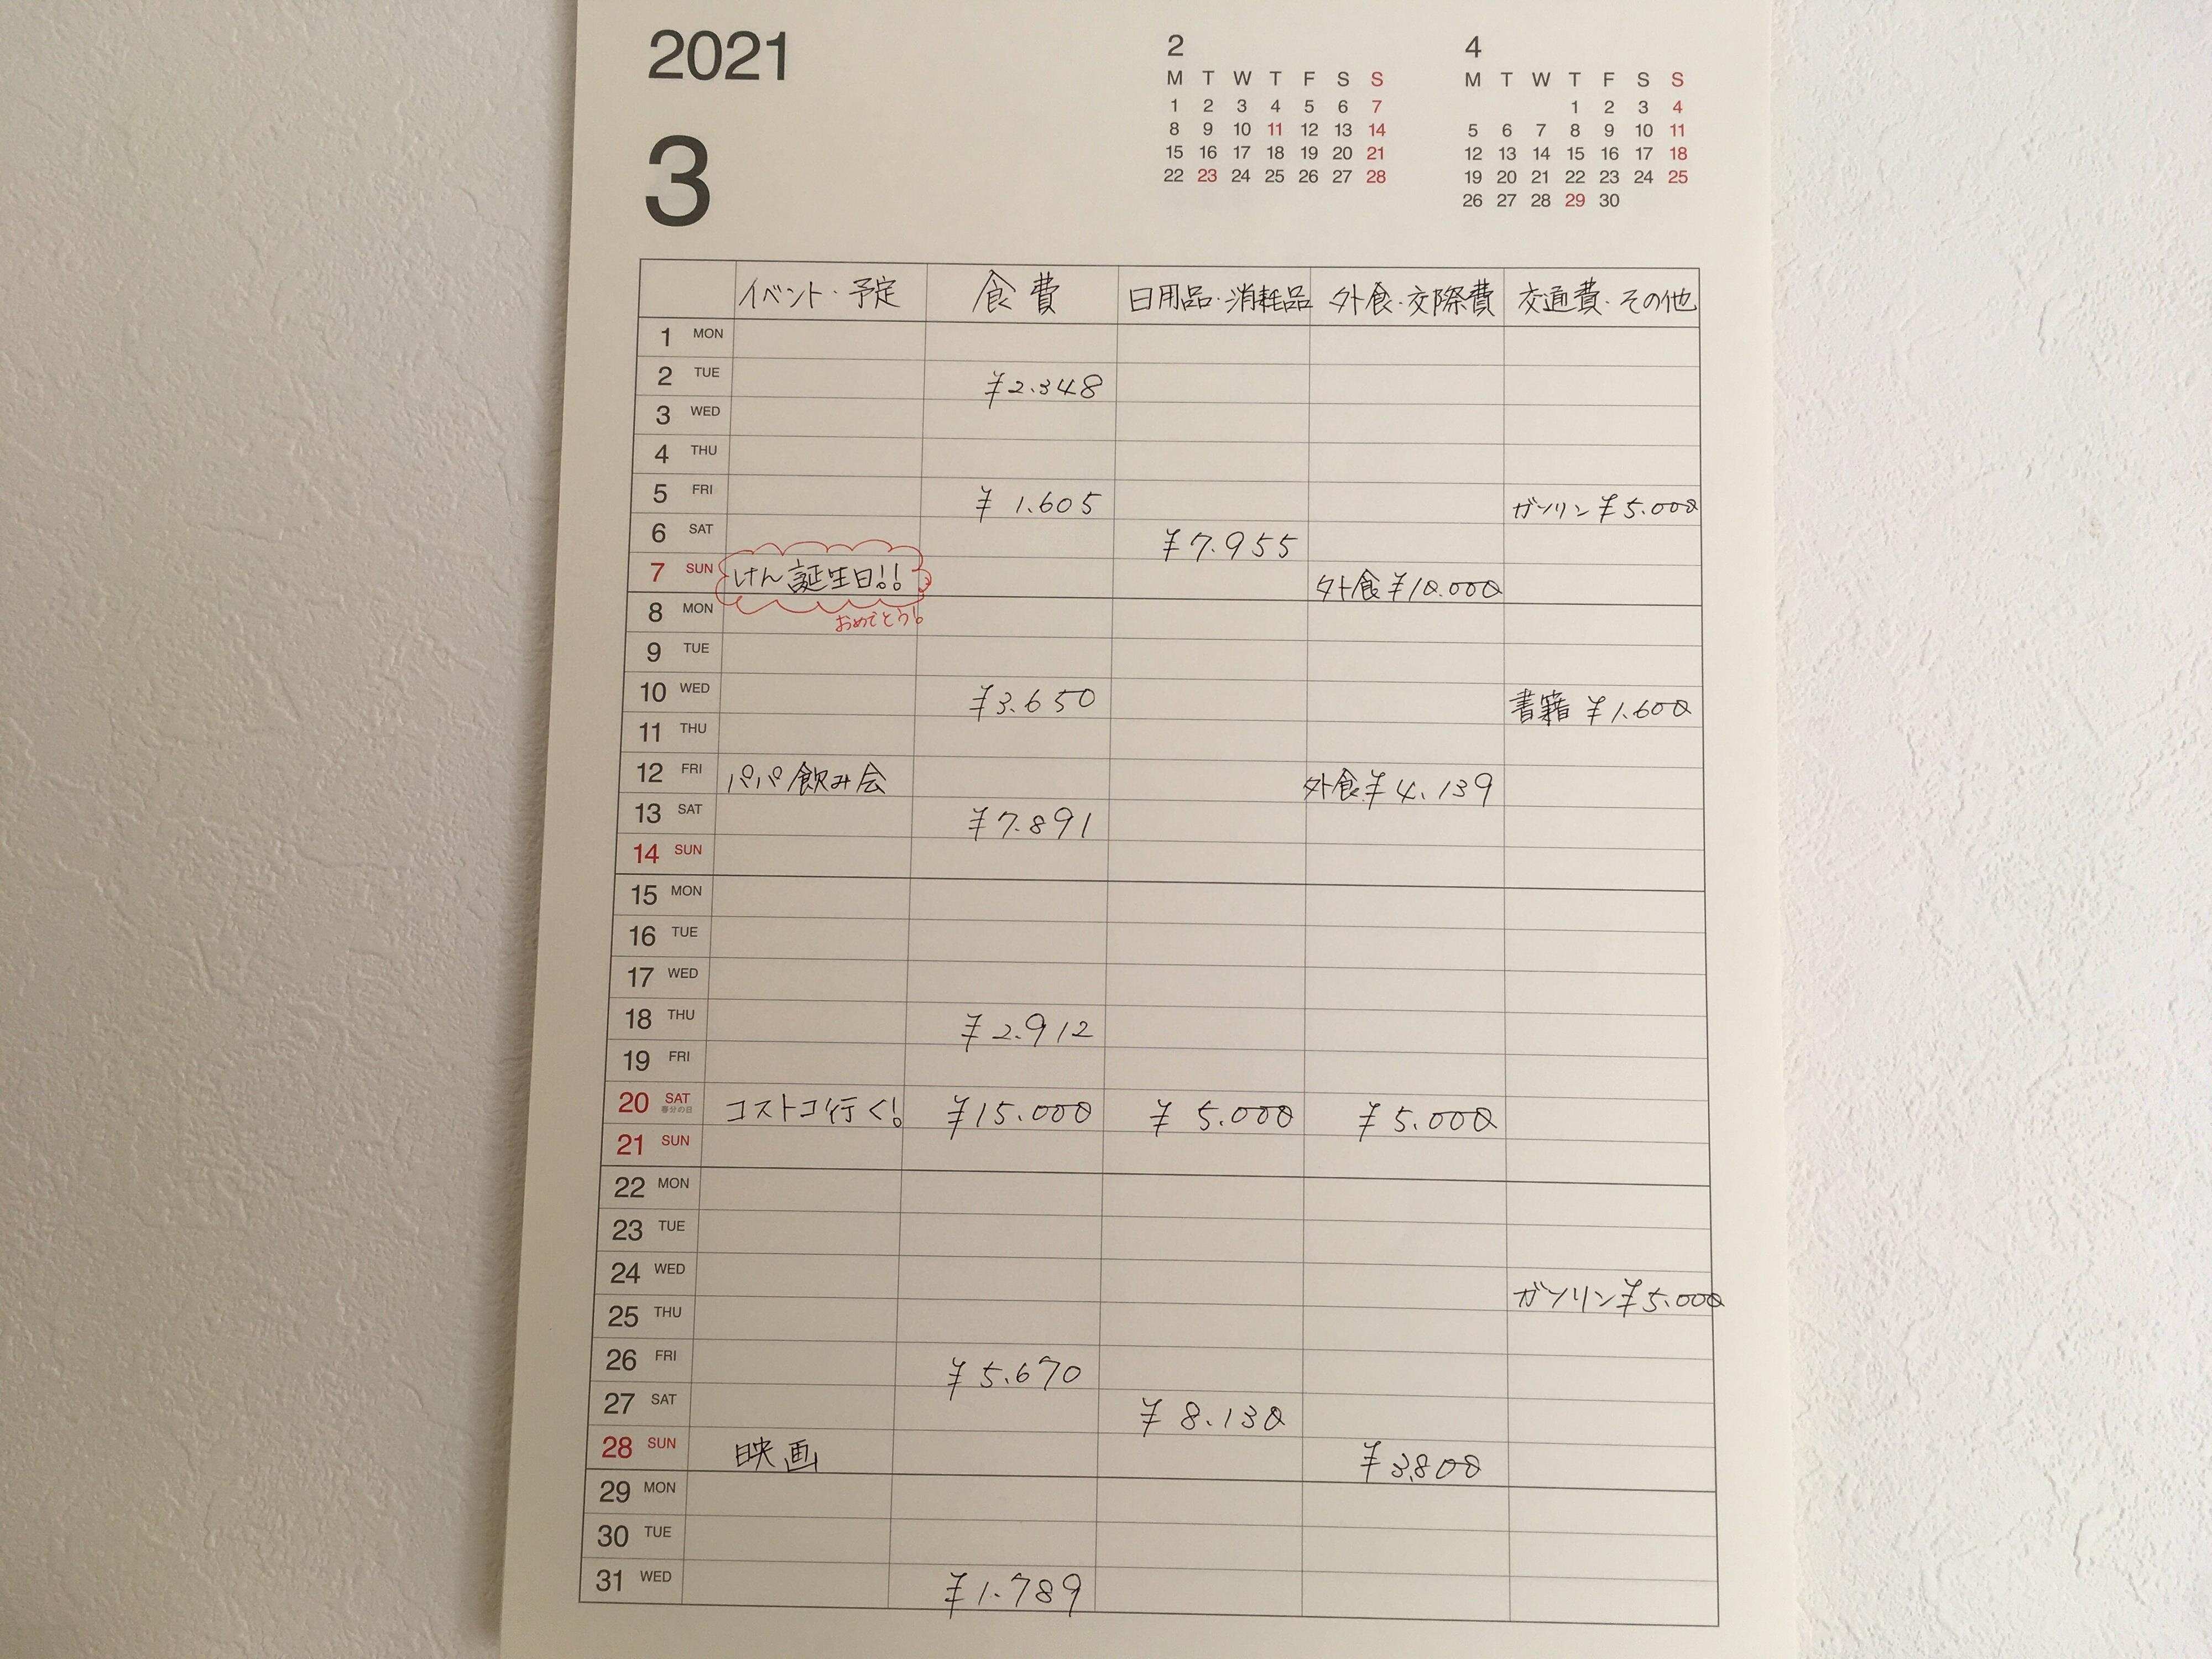 2021
3
2
M T W T F S S
1 2 3 4 5 6 7
8 9 10 11 12 13 14
15 16 17 18 19 20 21
22 23 24 25 26 27 28
4
M T W T F S S
1 2 3 4
5 6 7 8 9 10 11
12 13 14 15 16 17 18
19 20 21 22 23 24 25
26 27 28 29 30
イベント・予定 食費 日用品・消耗品 外食・交際費 交通費・その他
1 MON
2 TUE ¥2.348
3 WED
4 THU
5 FRI ¥1.605 ガソリン ¥5.000
6 SAT ¥7.955
7 SUN けん誕生日!! 外食 ¥10.000
おめでとう!
8 MON
9 TUE
10 WED ¥3.650 書籍 ¥1.600
11 THU
12 FRI パパ飲み会 外食 ¥4.139
13 SAT ¥7.891
14 SUN
15 MON
16 TUE
17 WED
18 THU ¥2.912
19 FRI
20 SAT 春分の日 コストコ行く! ¥15.000 ¥5.000 ¥5.000
21 SUN
22 MON
23 TUE
24 WED ガソリン ¥5.000
25 THU
26 FRI ¥5.670
27 SAT ¥8.130
28 SUN 映画 ¥3.800
29 MON
30 TUE
31 WED ¥1.789